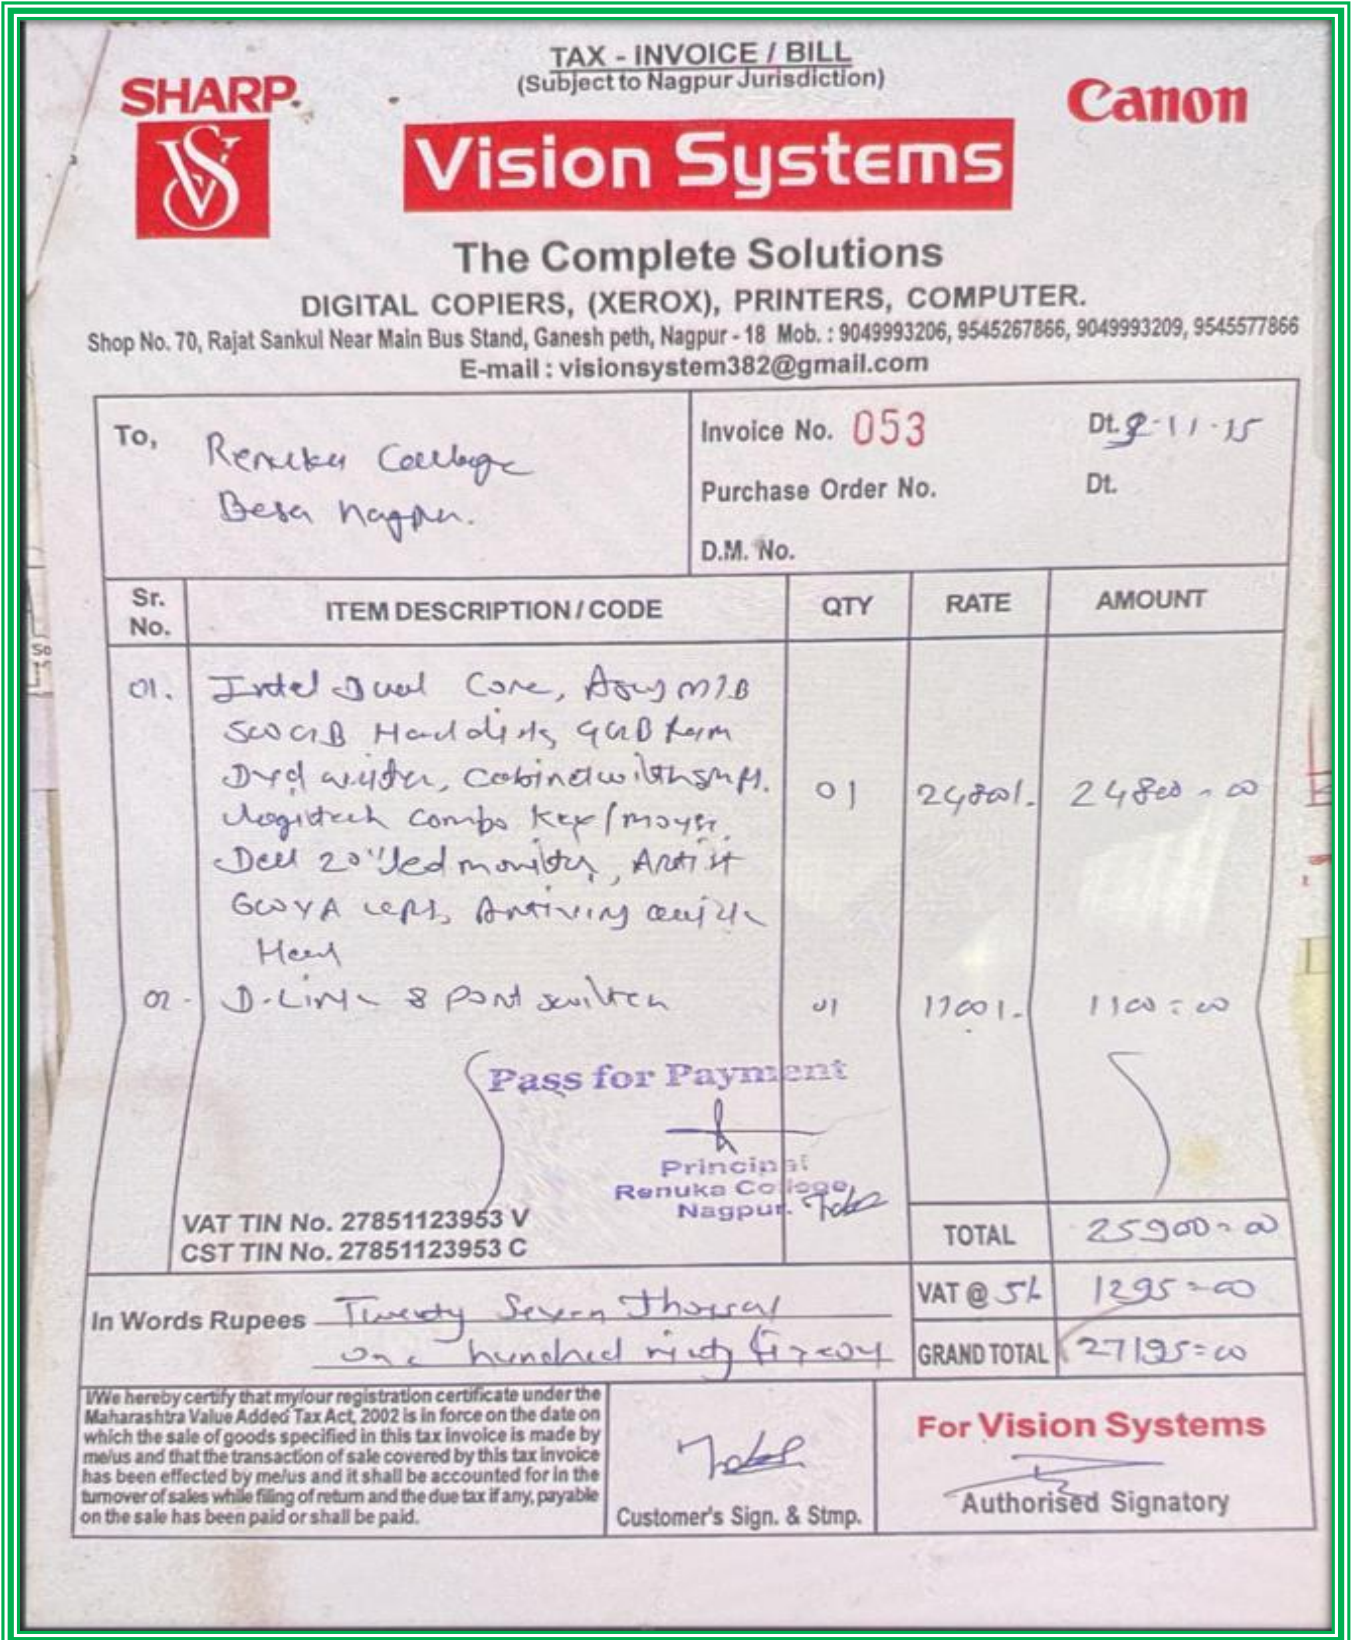 TAX - INVOICE / BILL
(Subject to Nagpur Jurisdiction)
SHARP
Canon
VS
Vision Systems
The Complete Solutions
DIGITAL COPIERS, (XEROX), PRINTERS, COMPUTER.
Shop No. 70, Rajat Sankul Near Main Bus Stand, Ganesh peth, Nagpur - 18 Mob. : 9049993206, 9545267866, 9049993209, 9545577866
E-mail : visionsystem382@gmail.com
To,
Renuka College
Besa Nagpur.
Invoice No. 053 Dt. -11-15
Purchase Order No. Dt.
D.M. No.
Sr. No. ITEM DESCRIPTION / CODE QTY RATE AMOUNT
01. Intel Dual Core, Asus M/B
500GB Harddisk, Ram
Dvd writer, Cabinet with smps. 01 24800/- 24800=00
Logitech Combo Key/mouse,
Dell 20" Led monitor, Artist
600VA ups, Antivirus quick
Heal
02 - D-Link 8 port switch 01 1100/- 1100=00
Pass for Payment
Principal
Renuka College,
Nagpur.
VAT TIN No. 27851123953 V
CST TIN No. 27851123953 C
TOTAL 25900=00
VAT @ 5% 1295=00
GRAND TOTAL 27195=00
In Words Rupees Twenty Seven Thousand
one hundred ninty five only
I/We hereby certify that my/our registration certificate under the
Maharashtra Value Added Tax Act, 2002 is in force on the date on
which the sale of goods specified in this tax invoice is made by
me/us and that the transaction of sale covered by this tax invoice
has been effected by me/us and it shall be accounted for in the
turnover of sales while filing of return and the due tax if any, payable
on the sale has been paid or shall be paid.
Customer's Sign. & Stmp.
For Vision Systems
Authorised Signatory